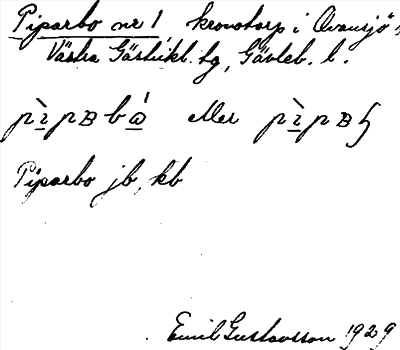 Piparbo nr 1 kronotorp i Ovansjö s
Västra Gästrikl. tg, Gävleb. l.
eller
Piparbo jb, kb
Emil Gustavsson 1929